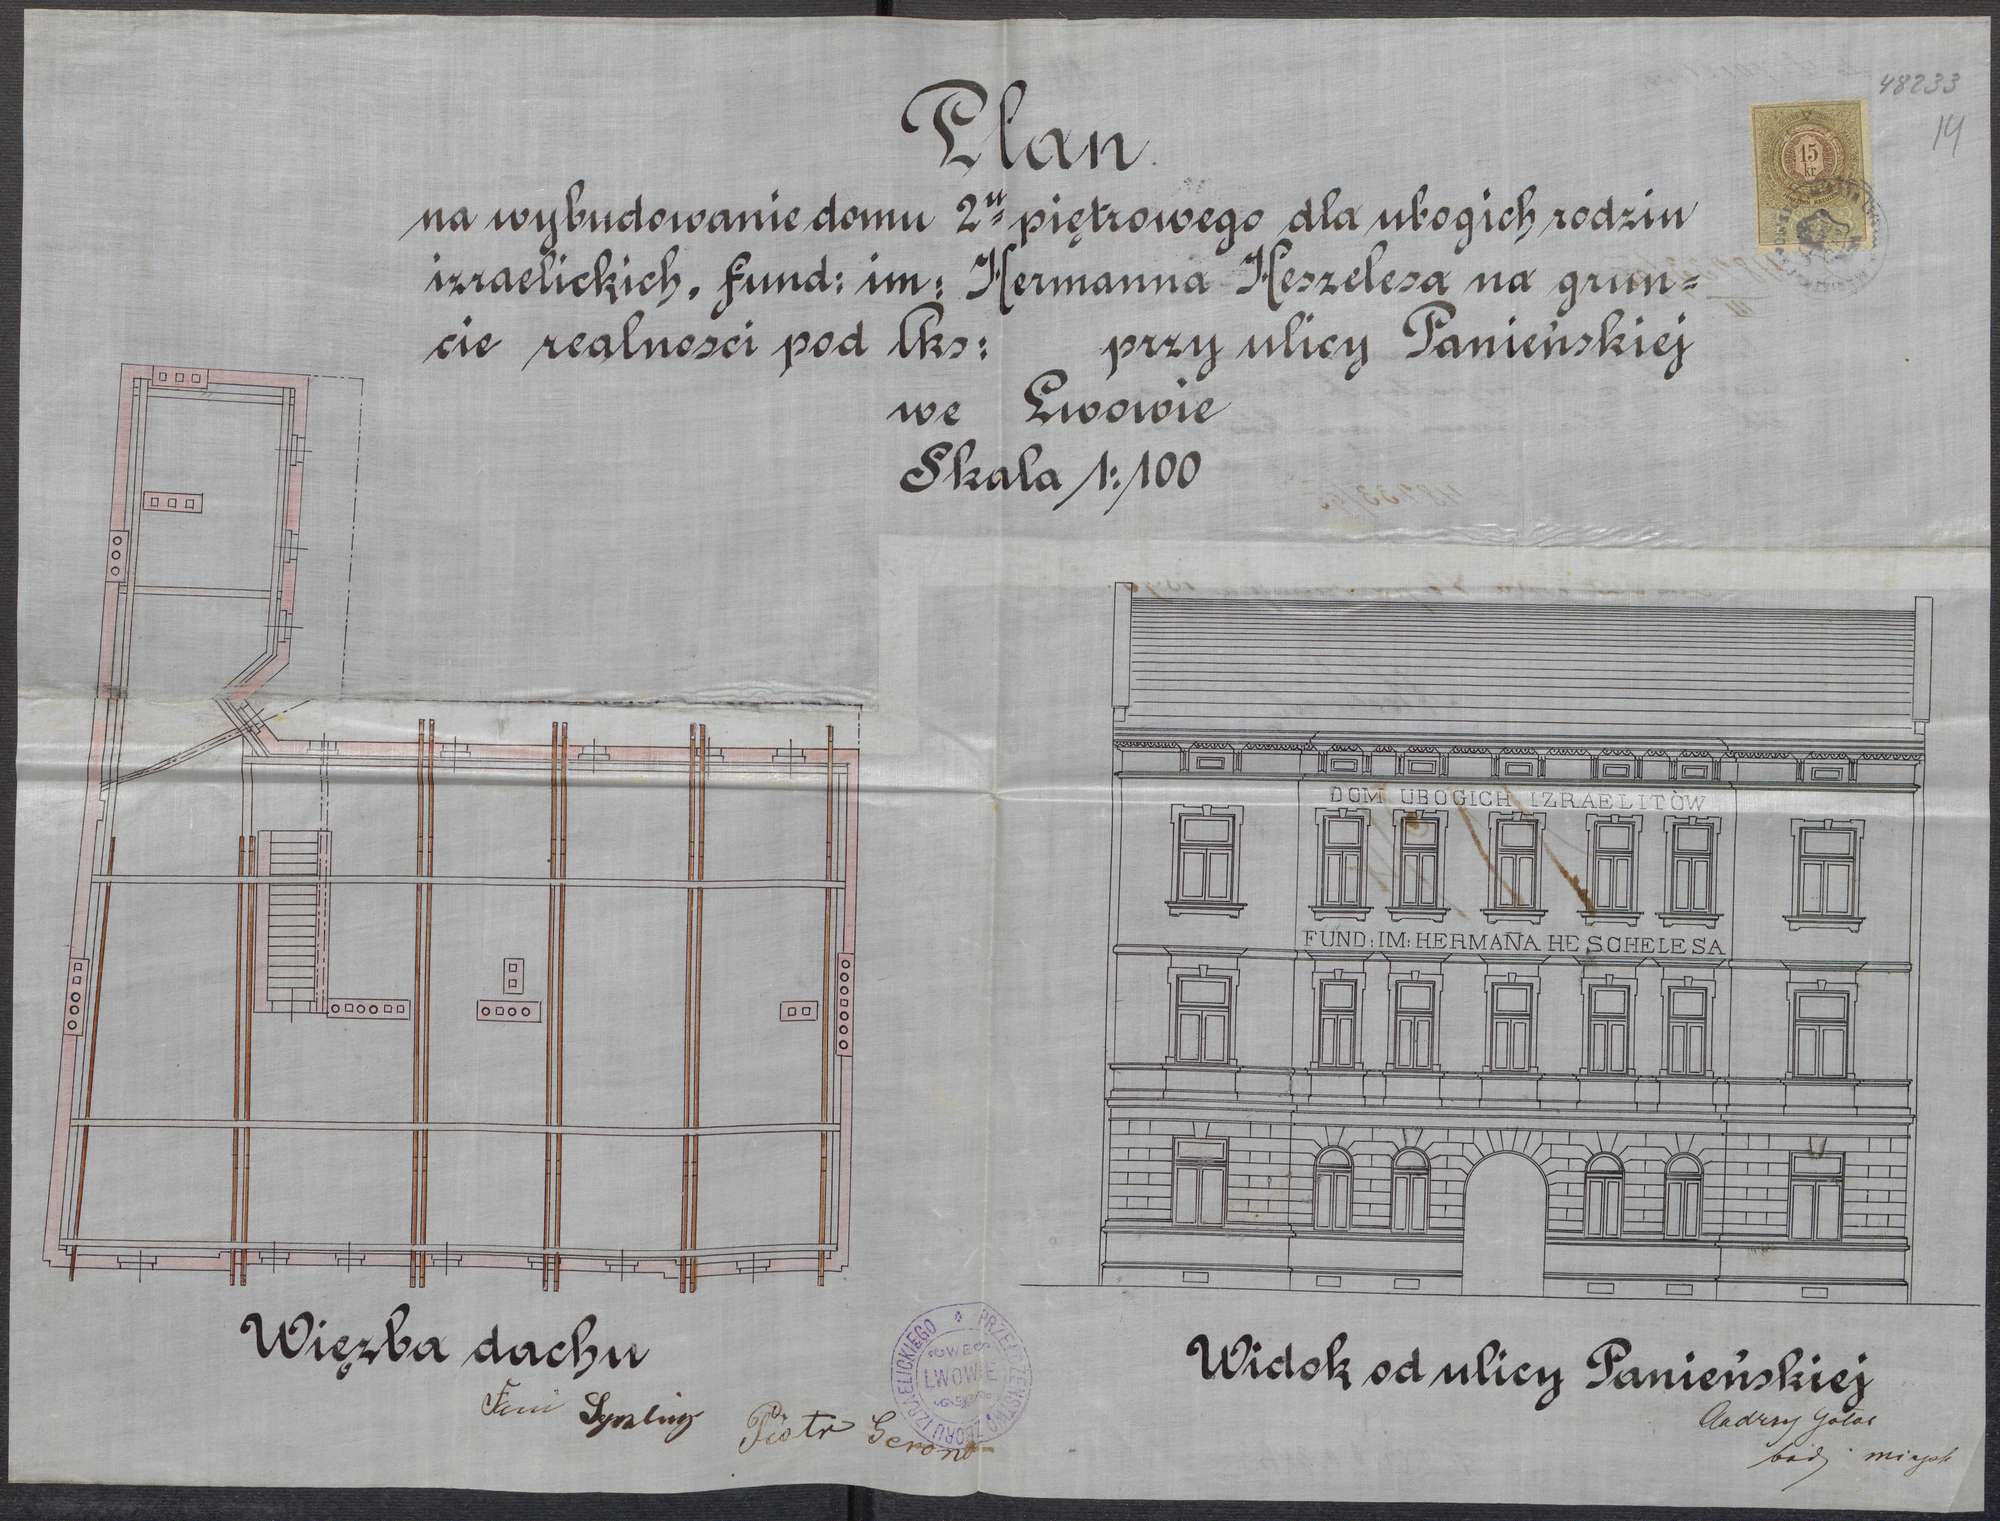 48233
14
15
kr
Plan
na wybudowanie domu 2u piętrowego dla ubogich rodzin
izraelickich, Fund: im: Hermanna Heszelesa na grun=
cie realnosci pod lks: przy ulicy Panieńskiej
we Lwowie
Skala 1:100
DOM UBOGICH IZRAELITÓW
FUND: IM: HERMANA HESCHELESA
Więzba dachu
Widok od ulicy Panieńskiej
PRZEŁOŻEŃSTWO ZBORU IZRAELICKIEGO
WE
LWOWIE
Piotr
Andrzej Gołąb